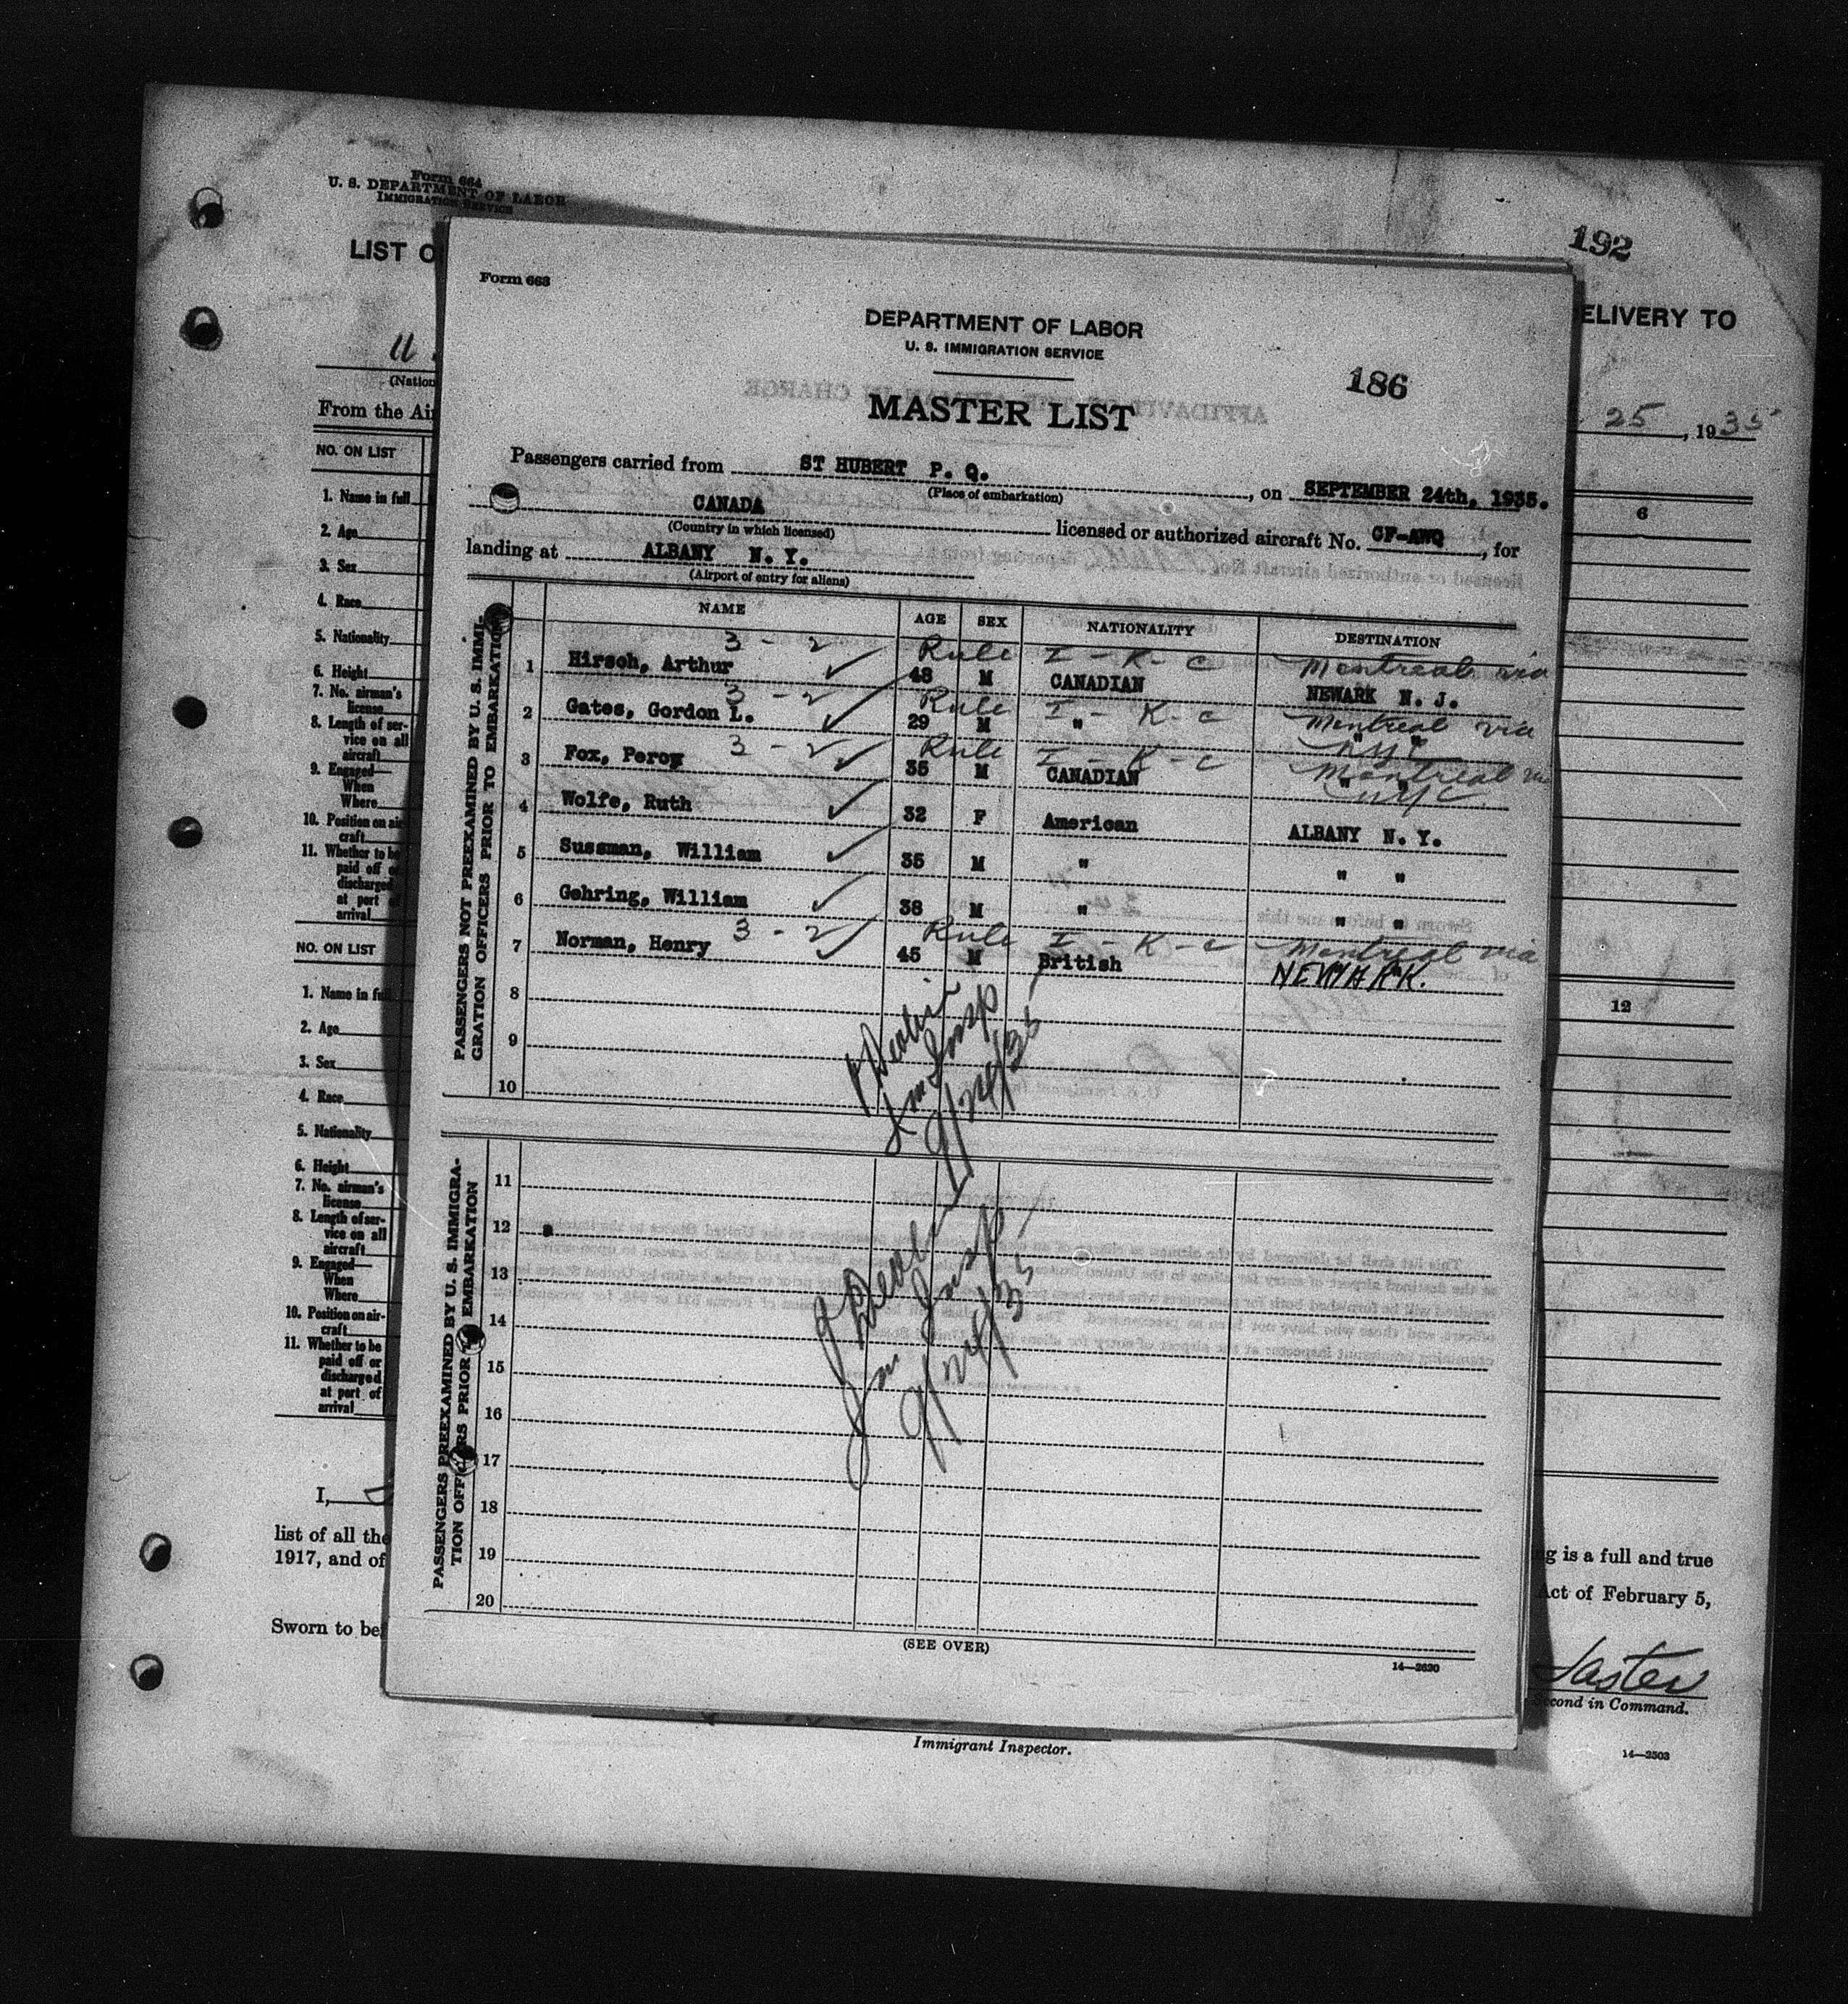 Form 664
U. S. DEPARTMENT OF LABOR
IMMIGRATION SERVICE
192
LIST O
ELIVERY TO
(Nation
25, 1935
From the Air
NO. ON LIST
6
1. Name in full
2. Age
3. Sex
4. Race
5. Nationality
6. Height
7. No. airman's
license
8. Length of ser-
vice on all
aircraft
9. Engaged—
When
Where
10. Position on air-
craft
11. Whether to be
paid off o
discharged
at port of
arrival
NO. ON LIST
12
1. Name in fu
2. Age
3. Sex
4. Race
5. Nationality
6. Height
7. No. airman's
license
8. Length of ser-
vice on all
aircraft
9. Engaged—
When
Where
10. Position on air-
craft
11. Whether to be
paid off or
discharged
at port of
arrival
I,
list of all the
ng is a full and true
1917, and of
Act of February 5,
Sworn to be
Second in Command.
Immigrant Inspector.
14—2503
Form 663
DEPARTMENT OF LABOR
U. S. IMMIGRATION SERVICE
186
MASTER LIST
Passengers carried from ST HUBERT P. Q. , on SEPTEMBER 24th, 1935.
(Place of embarkation)
CANADA licensed or authorized aircraft No. CF-AWQ, for
(Country in which licensed)
landing at ALBANY N. Y.
(Airport of entry for aliens)
PASSENGERS NOT PREEXAMINED BY U. S. IMMI-
GRATION OFFICERS PRIOR TO EMBARKATION
NAME AGE SEX NATIONALITY DESTINATION
3 - 2 Rule I - K - c Montreal via
1 Hirsch, Arthur 48 M CANADIAN NEWARK N. J.
3 - 2 Rule I - K - c Montreal via
2 Gates, Gordon L. 29 M " "
3 - 2 Rule I - K - c Montreal
3 Fox, Percy 35 M CANADIAN " "
4 Wolfe, Ruth 32 F American ALBANY N. Y.
5 Sussman, William 35 M " " "
6 Gehring, William 38 M " " "
3 - 2 Rule I - K - c Montreal via
7 Norman, Henry 45 M British NEWARK.
8
9
10
Im Insp
9/24/35
PASSENGERS PREEXAMINED BY U. S. IMMIGRA-
TION OFFICERS PRIOR TO EMBARKATION
11
12
13
14
15
16
17
18
19
20
Im Insp
9/24/35
(SEE OVER)
14—2630